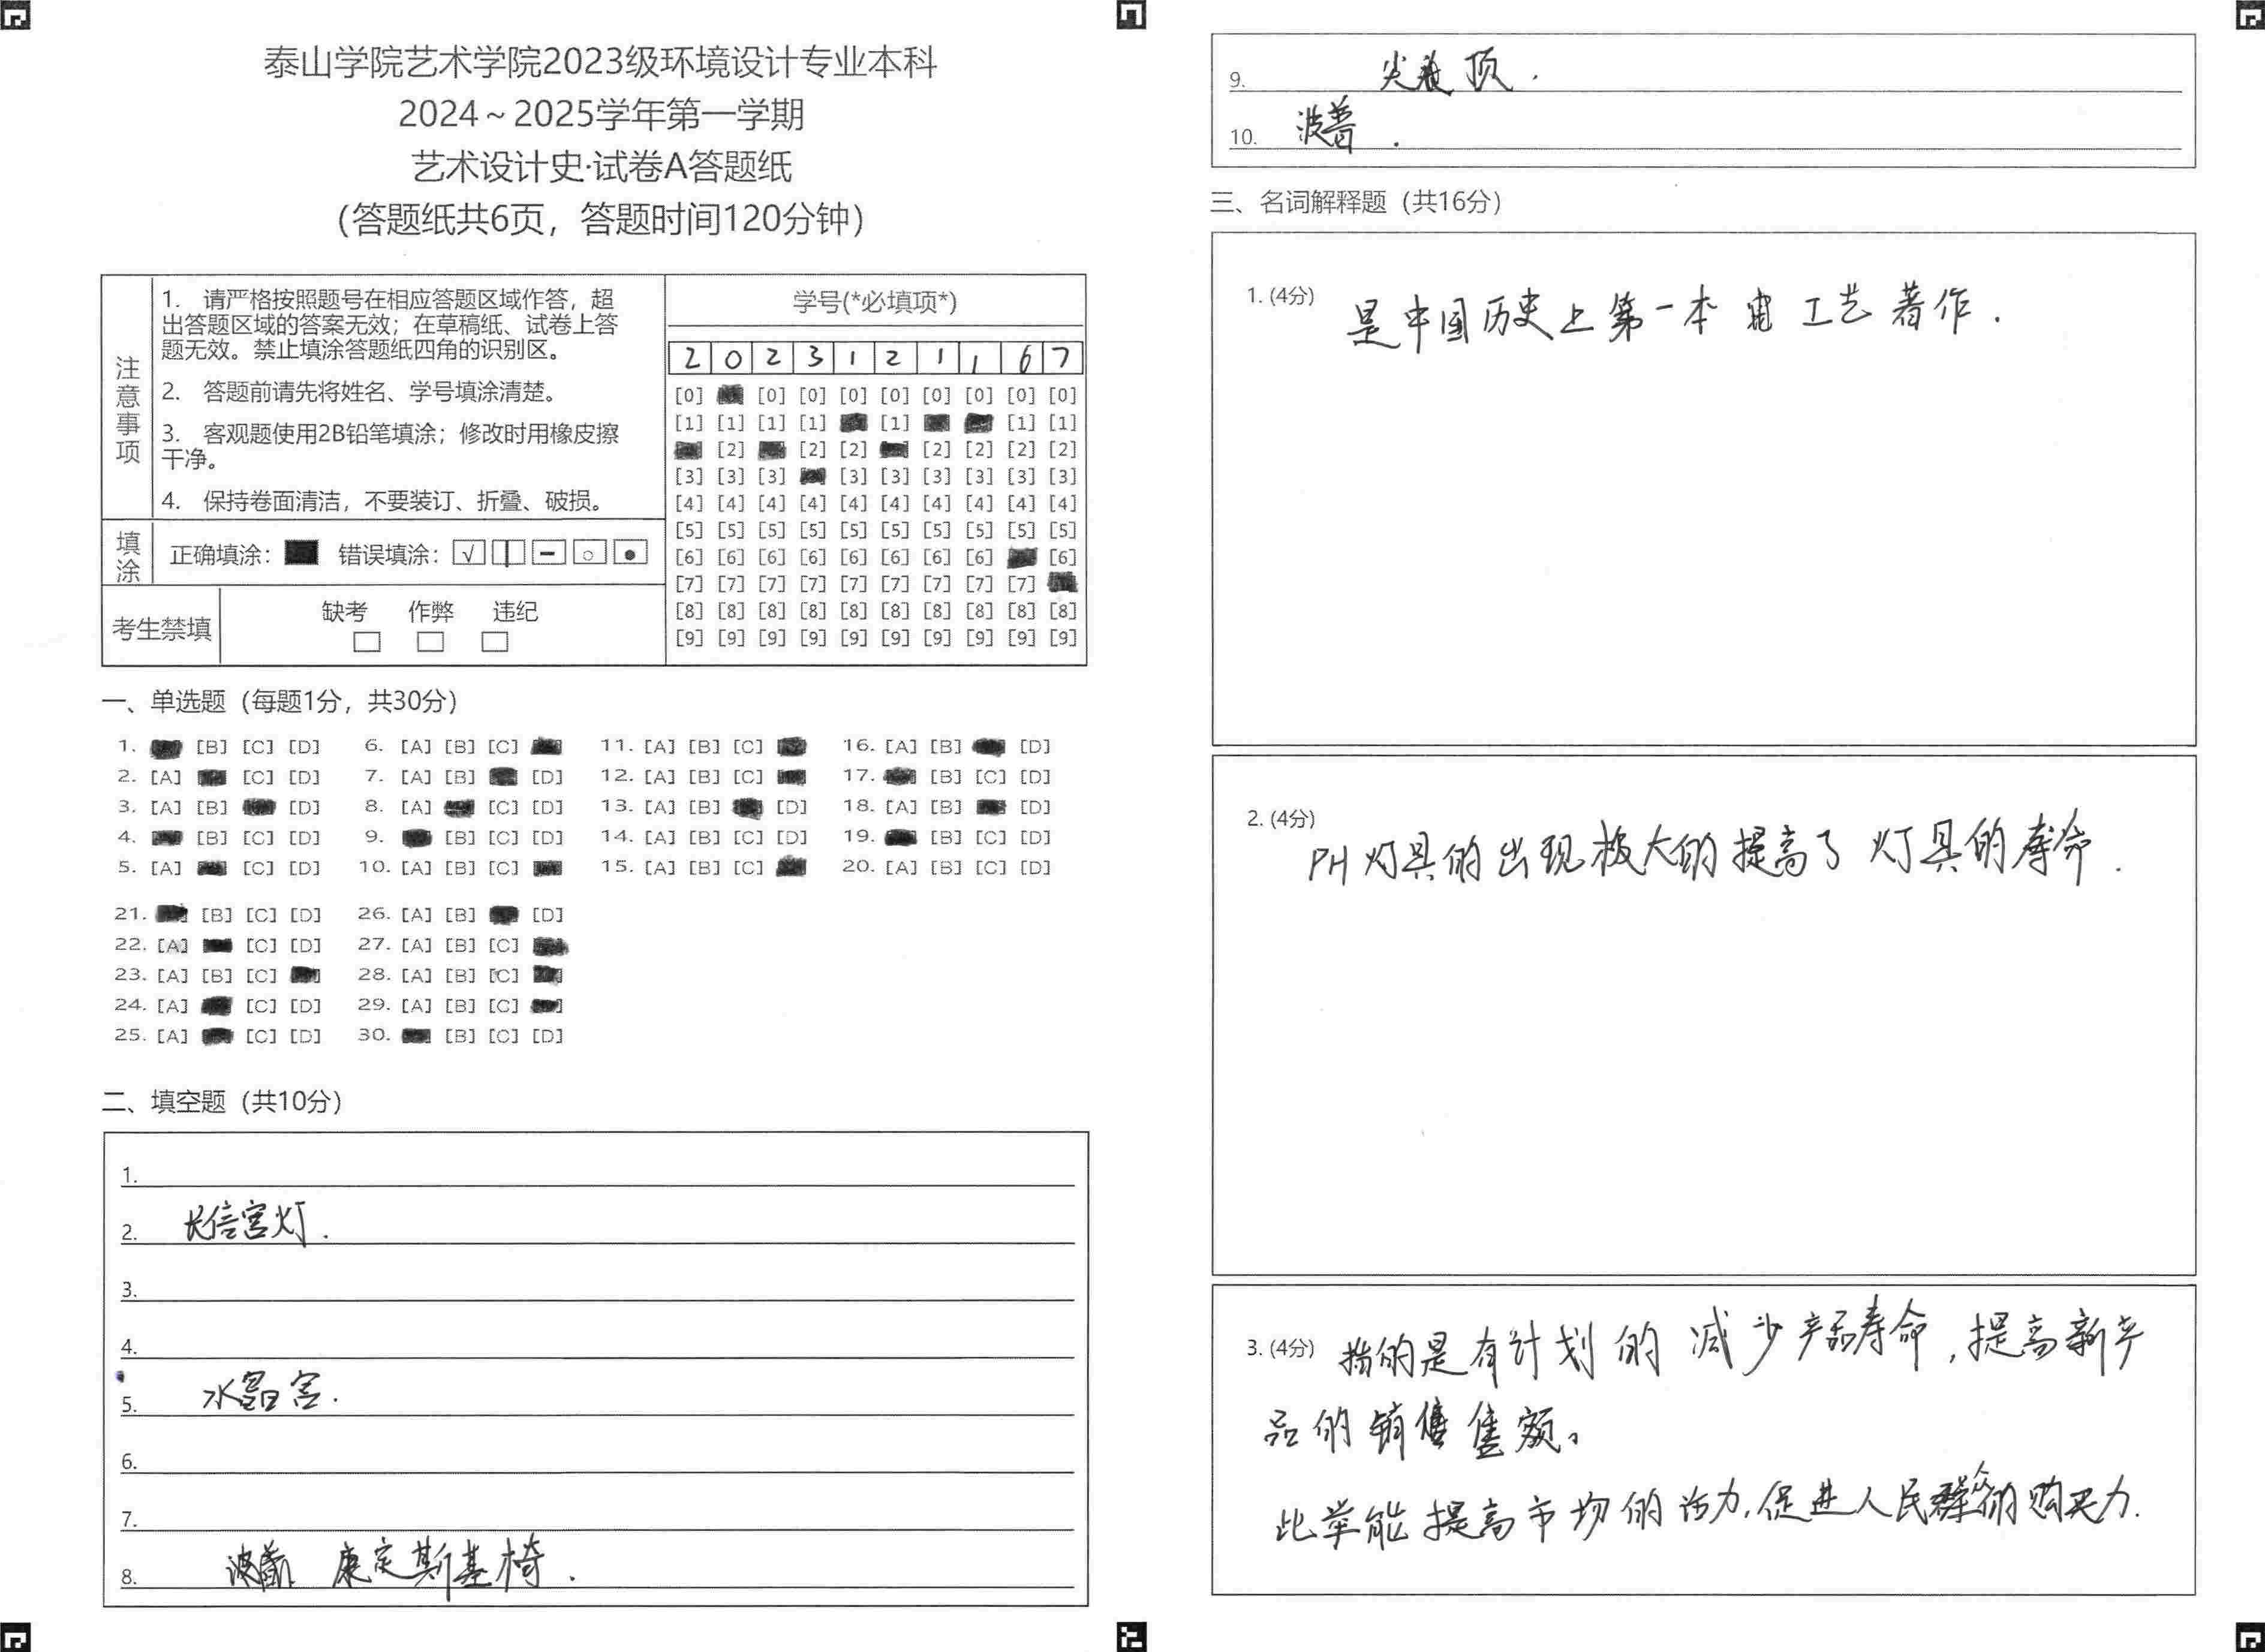 泰山学院艺术学院2023级环境设计专业本科
2024～2025学年第一学期
艺术设计史·试卷A答题纸
（答题纸共6页，答题时间120分钟）
注意事项
1. 请严格按照题号在相应答题区域作答，超
出答题区域的答案无效；在草稿纸、试卷上答
题无效。禁止填涂答题纸四角的识别区。
2. 答题前请先将姓名、学号填涂清楚。
3. 客观题使用2B铅笔填涂；修改时用橡皮擦
干净。
4. 保持卷面清洁，不要装订、折叠、破损。
填涂
正确填涂： 错误填涂：
考生禁填
缺考 作弊 违纪
学号(*必填项*)
2 0 2 3 1 2 1 1 6 7
[0] [0] [0] [0] [0] [0] [0] [0] [0]
[1] [1] [1] [1] [1] [1] [1]
[2] [2] [2] [2] [2] [2] [2]
[3] [3] [3] [3] [3] [3] [3] [3] [3]
[4] [4] [4] [4] [4] [4] [4] [4] [4] [4]
[5] [5] [5] [5] [5] [5] [5] [5] [5] [5]
[6] [6] [6] [6] [6] [6] [6] [6] [6]
[7] [7] [7] [7] [7] [7] [7] [7] [7]
[8] [8] [8] [8] [8] [8] [8] [8] [8] [8]
[9] [9] [9] [9] [9] [9] [9] [9] [9] [9]
一、单选题（每题1分，共30分）
1. [B] [C] [D] 6. [A] [B] [C] 11. [A] [B] [C] 16. [A] [B] [D]
2. [A] [C] [D] 7. [A] [B] [D] 12. [A] [B] [C] 17. [B] [C] [D]
3. [A] [B] [D] 8. [A] [C] [D] 13. [A] [B] [D] 18. [A] [B] [D]
4. [B] [C] [D] 9. [B] [C] [D] 14. [A] [B] [C] [D] 19. [B] [C] [D]
5. [A] [C] [D] 10. [A] [B] [C] 15. [A] [B] [C] 20. [A] [B] [C] [D]
21. [B] [C] [D] 26. [A] [B] [D]
22. [A] [C] [D] 27. [A] [B] [C]
23. [A] [B] [C] 28. [A] [B] [C]
24. [A] [C] [D] 29. [A] [B] [C]
25. [A] [C] [D] 30. [B] [C] [D]
二、填空题（共10分）
1.
2. 长信宫灯.
3.
4.
5. 水晶宫.
6.
7.
8. 康定斯基椅.
9. 尖 顶.
10. 波普.
三、名词解释题（共16分）
1. (4分) 是中国历史上第一本 工艺著作.
2. (4分) PH灯具的出现极大的提高了灯具的寿命.
3. (4分) 指的是有计划的减少产品寿命,提高新产
品的销售额。
此举能提高市场的活力,促进人民群众的购买力.